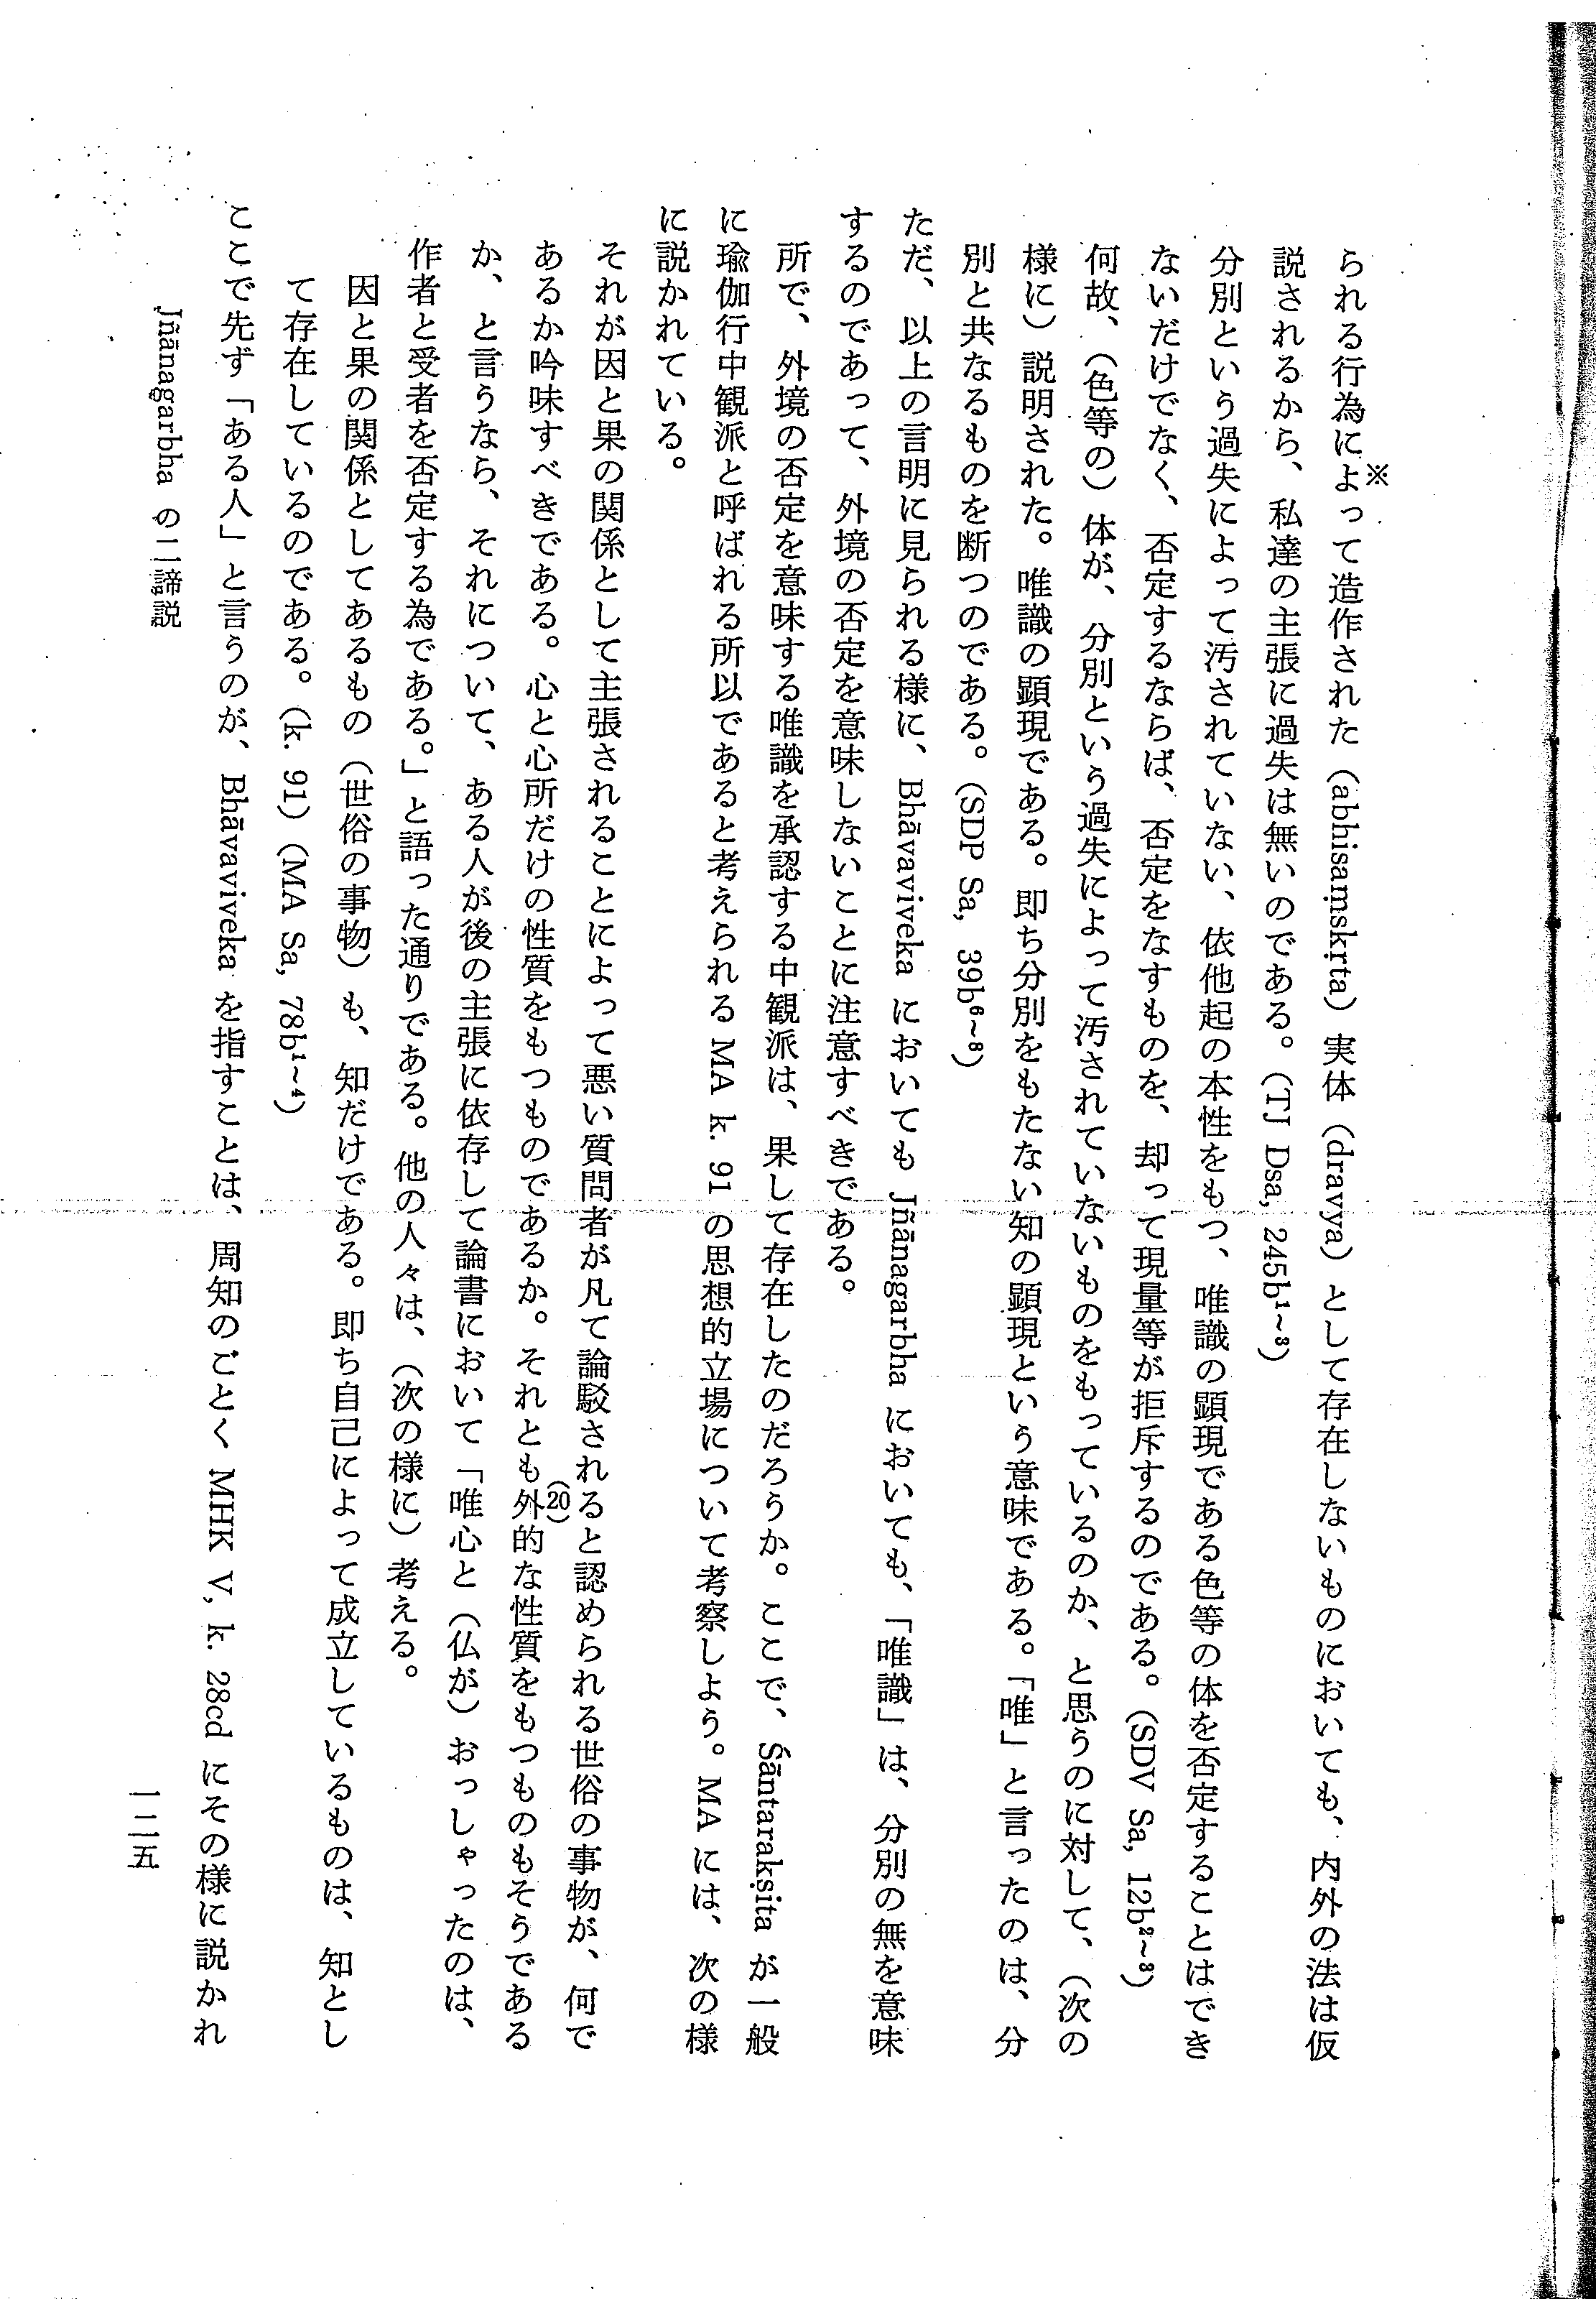 られる行為によ※って造作された（abhisaṃskṛta）実体（dravya）として存在しないものにおいても、内外の法は仮
説されるから、私達の主張に過失は無いのである。（TJ Dsa, 245b¹～³）
分別という過失によって汚されていない、依他起の本性をもつ、唯識の顕現である色等の体を否定することはでき
ないだけでなく、否定するならば、否定をなすものを、却って現量等が拒斥するのである。（SDV Sa, 12b²～³）
何故、（色等の）体が、分別という過失によって汚されていないものをもっているのか、と思うのに対して、（次の
様に）説明された。唯識の顕現である。即ち分別をもたない知の顕現という意味である。「唯」と言ったのは、分
別と共なるものを断つのである。（SDP Sa, 39b⁶～⁸）
ただ、以上の言明に見られる様に、Bhāvaviveka においても Jñānagarbha においても、「唯識」は、分別の無を意味
するのであって、外境の否定を意味しないことに注意すべきである。
所で、外境の否定を意味する唯識を承認する中観派は、果して存在したのだろうか。ここで、Śāntarakṣita が一般
に瑜伽行中観派と呼ばれる所以であると考えられる MA k. 91 の思想的立場について考察しよう。MA には、次の様
に説かれている。
それが因と果の関係として主張されることによって悪い質問者が凡て論駁されると認められる世俗の事物が、何で
あるか吟味すべきである。心と心所だけの性質をもつものであるか。それとも外(20)的な性質をもつものもそうである
か、と言うなら、それについて、ある人が後の主張に依存して論書において「唯心と（仏が）おっしゃったのは、
作者と受者を否定する為である。」と語った通りである。他の人々は、（次の様に）考える。
因と果の関係としてあるもの（世俗の事物）も、知だけである。即ち自己によって成立しているものは、知とし
て存在しているのである。（k. 91）（MA Sa, 78b¹～⁴）
ここで先ず「ある人」と言うのが、Bhāvaviveka を指すことは、周知のごとく MHK V, k. 28cd にその様に説かれ
Jñānagarbha の二諦説
一二五